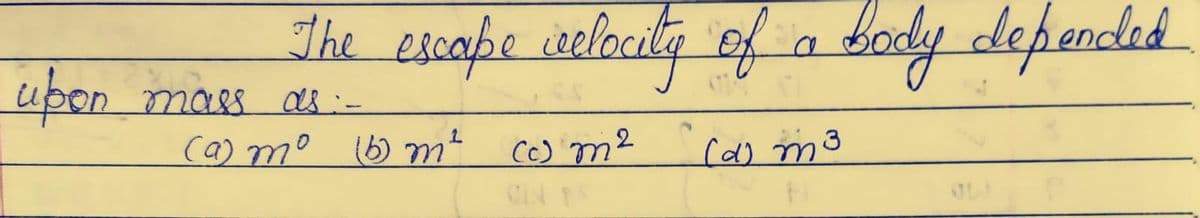 The escape velocity of a body depended
upon mass as :-
(a) m⁰ (b) m¹ (c) m² (d) m³